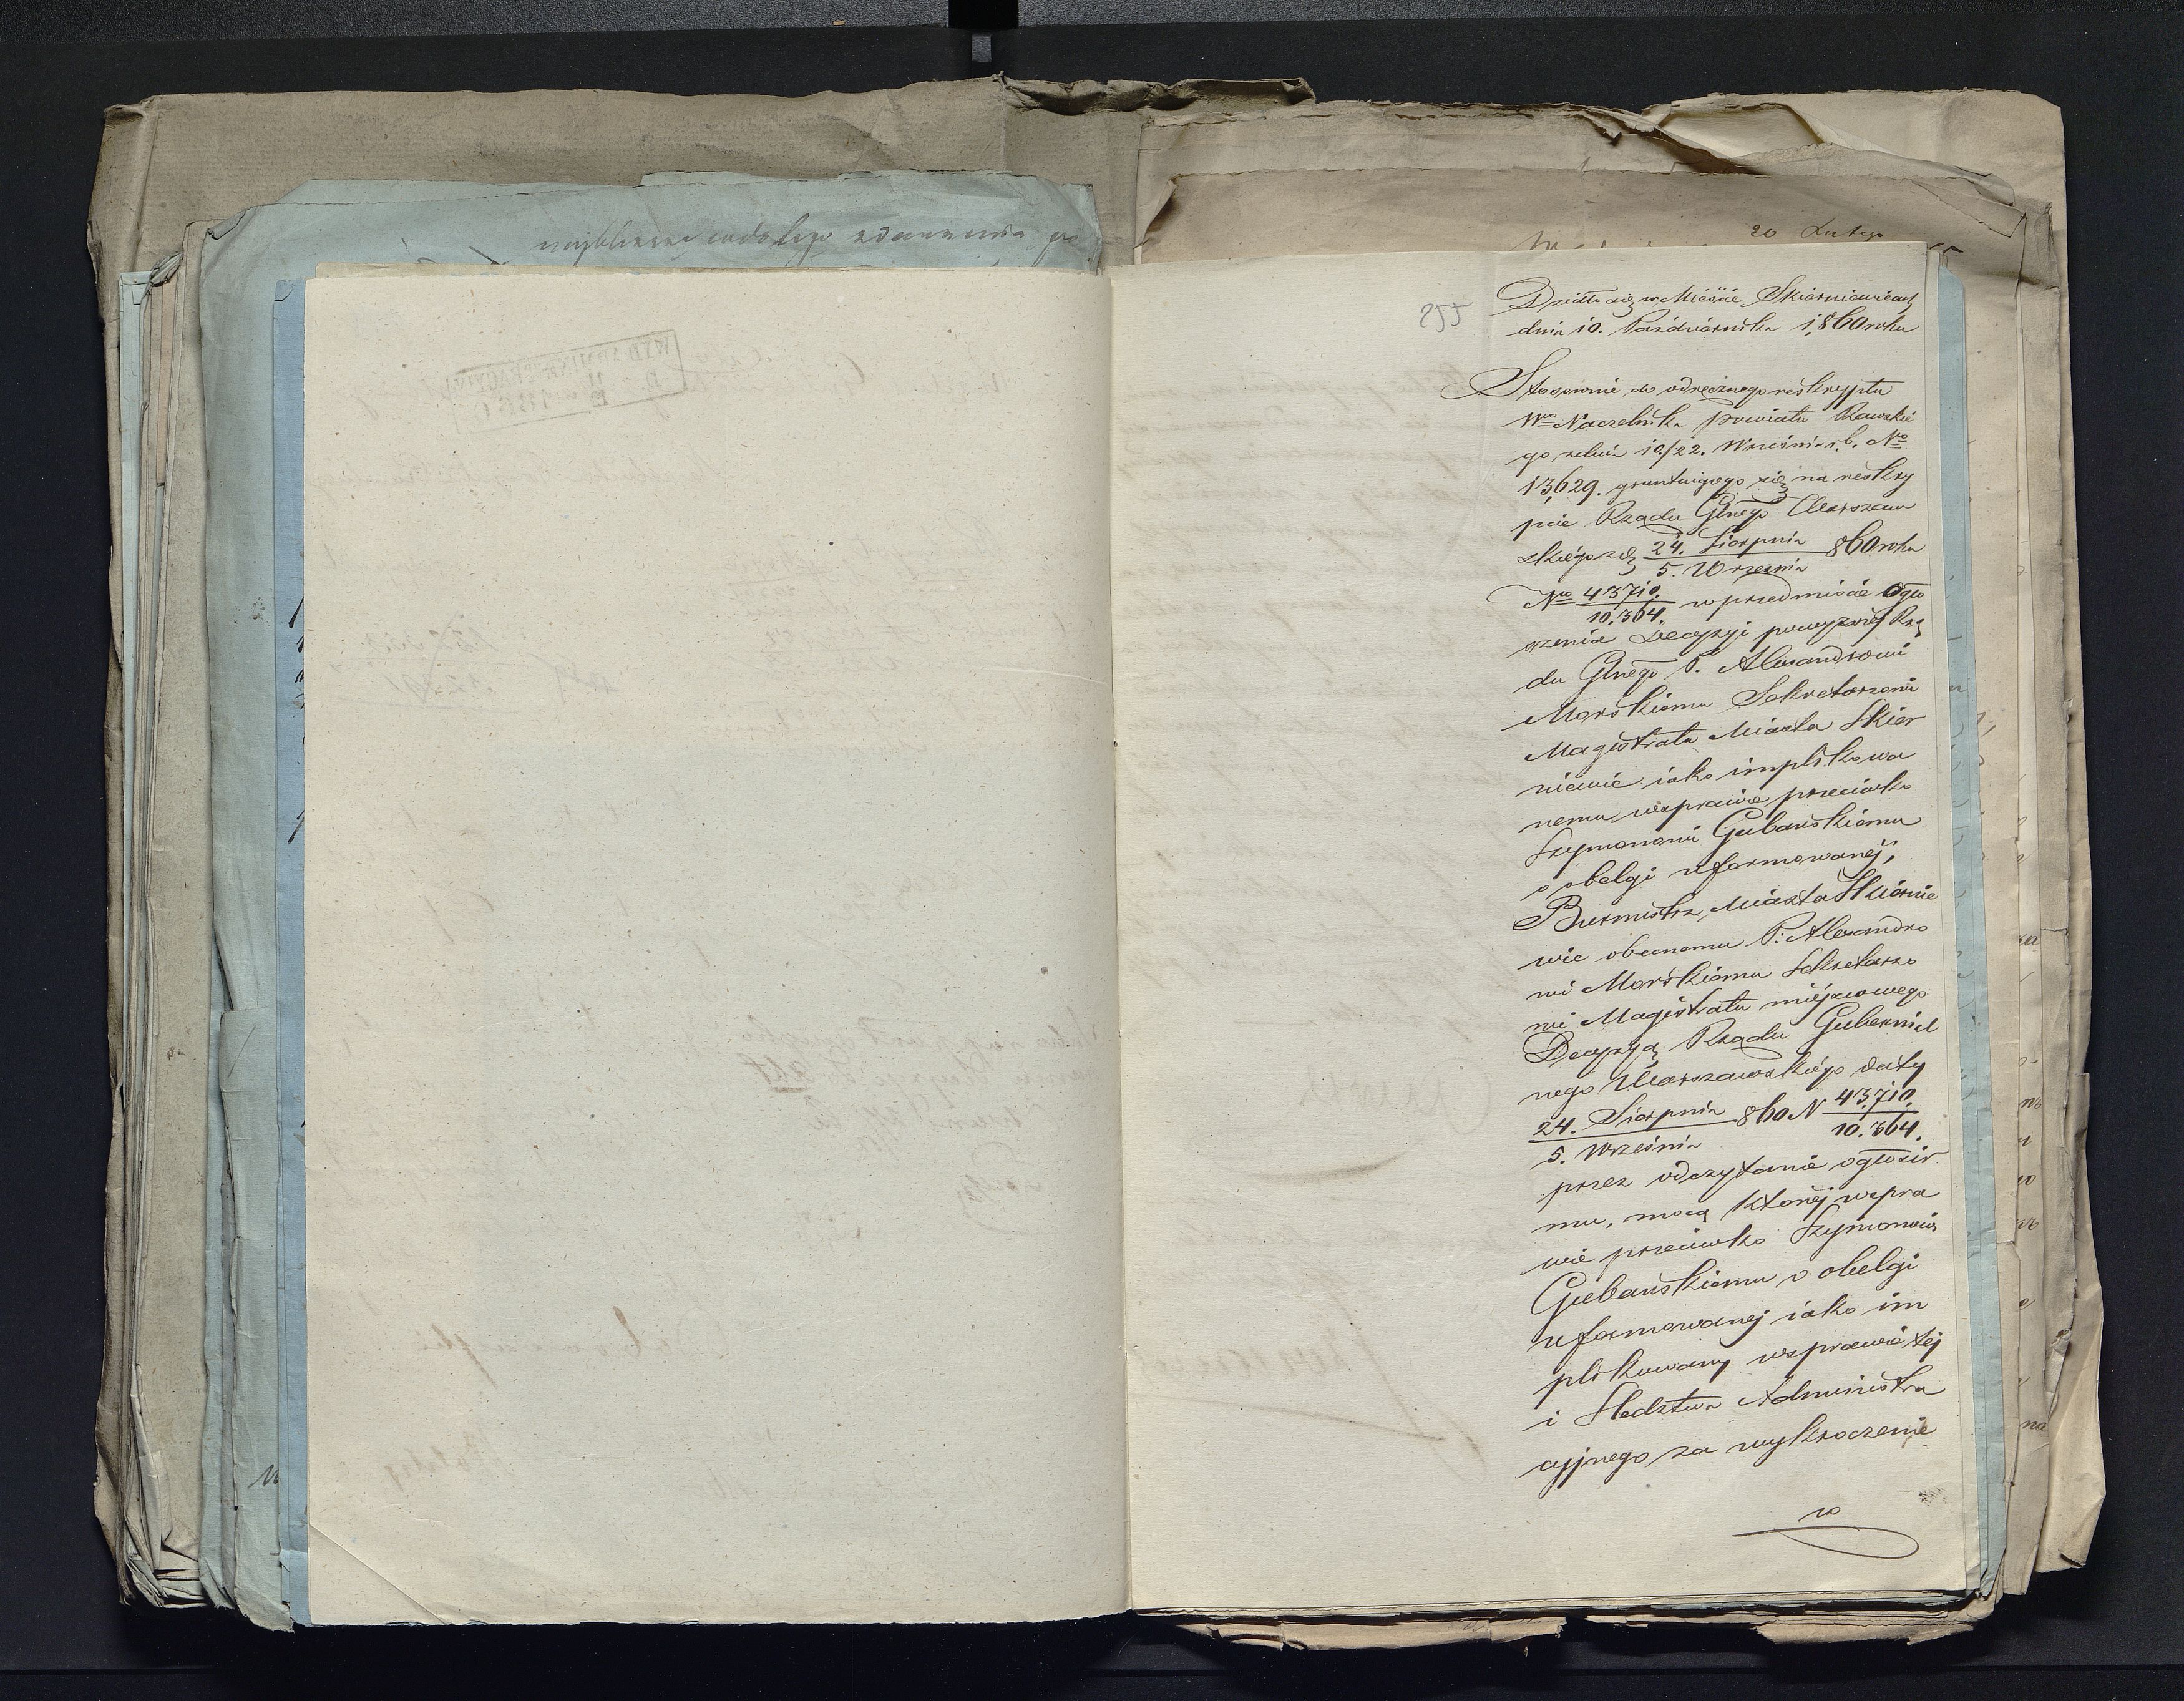 20 Lutego
255
Działo się w Mieście Skierniewicach
dnia 10. Października 1,860 roku
Stosownie do odręcznego reskryptu
Wgo Naczelnika Powiatu Rawskie
go z dnia 10/22. Września r.b. No
13,629. gruntuiącego się na reskry
pcie Rządu Glnego Warszaw
skiego z d. 24. Sierpnia / 5. Września 860 roku
No 43710. / 10.364. w przedmiocie ogło
szenia Decyzyi powyższej Rzą
du Glnego P. Alexandrowi
Morskiemu Sekretarzowi
Magistratu Miasta Skier
niewic iako implikowa
nemu w sprawie przeciwko
Szymonowi Gubańskiemu
o obelgi uformowanej,
Burmistrz Miasta Skiernie
wic obecnemu P: Alexandro
wi Morskiemu Sekretarzo
wi Magistratu miejscowego
Decyzyą Rządu Gubernial
nego Warszawskiego daty
24. Sierpnia / 5. Września 860 N 43,710. / 10.364.
przez odczytanie ogłosił
mu, mocą której w spra
wie przeciwko Szymonowi
Gubańskiemu o obelgi
uformowanej iako im
plikowany w sprawie tej
i Śledztwa Administra
cyjnego za wykroczenie
w